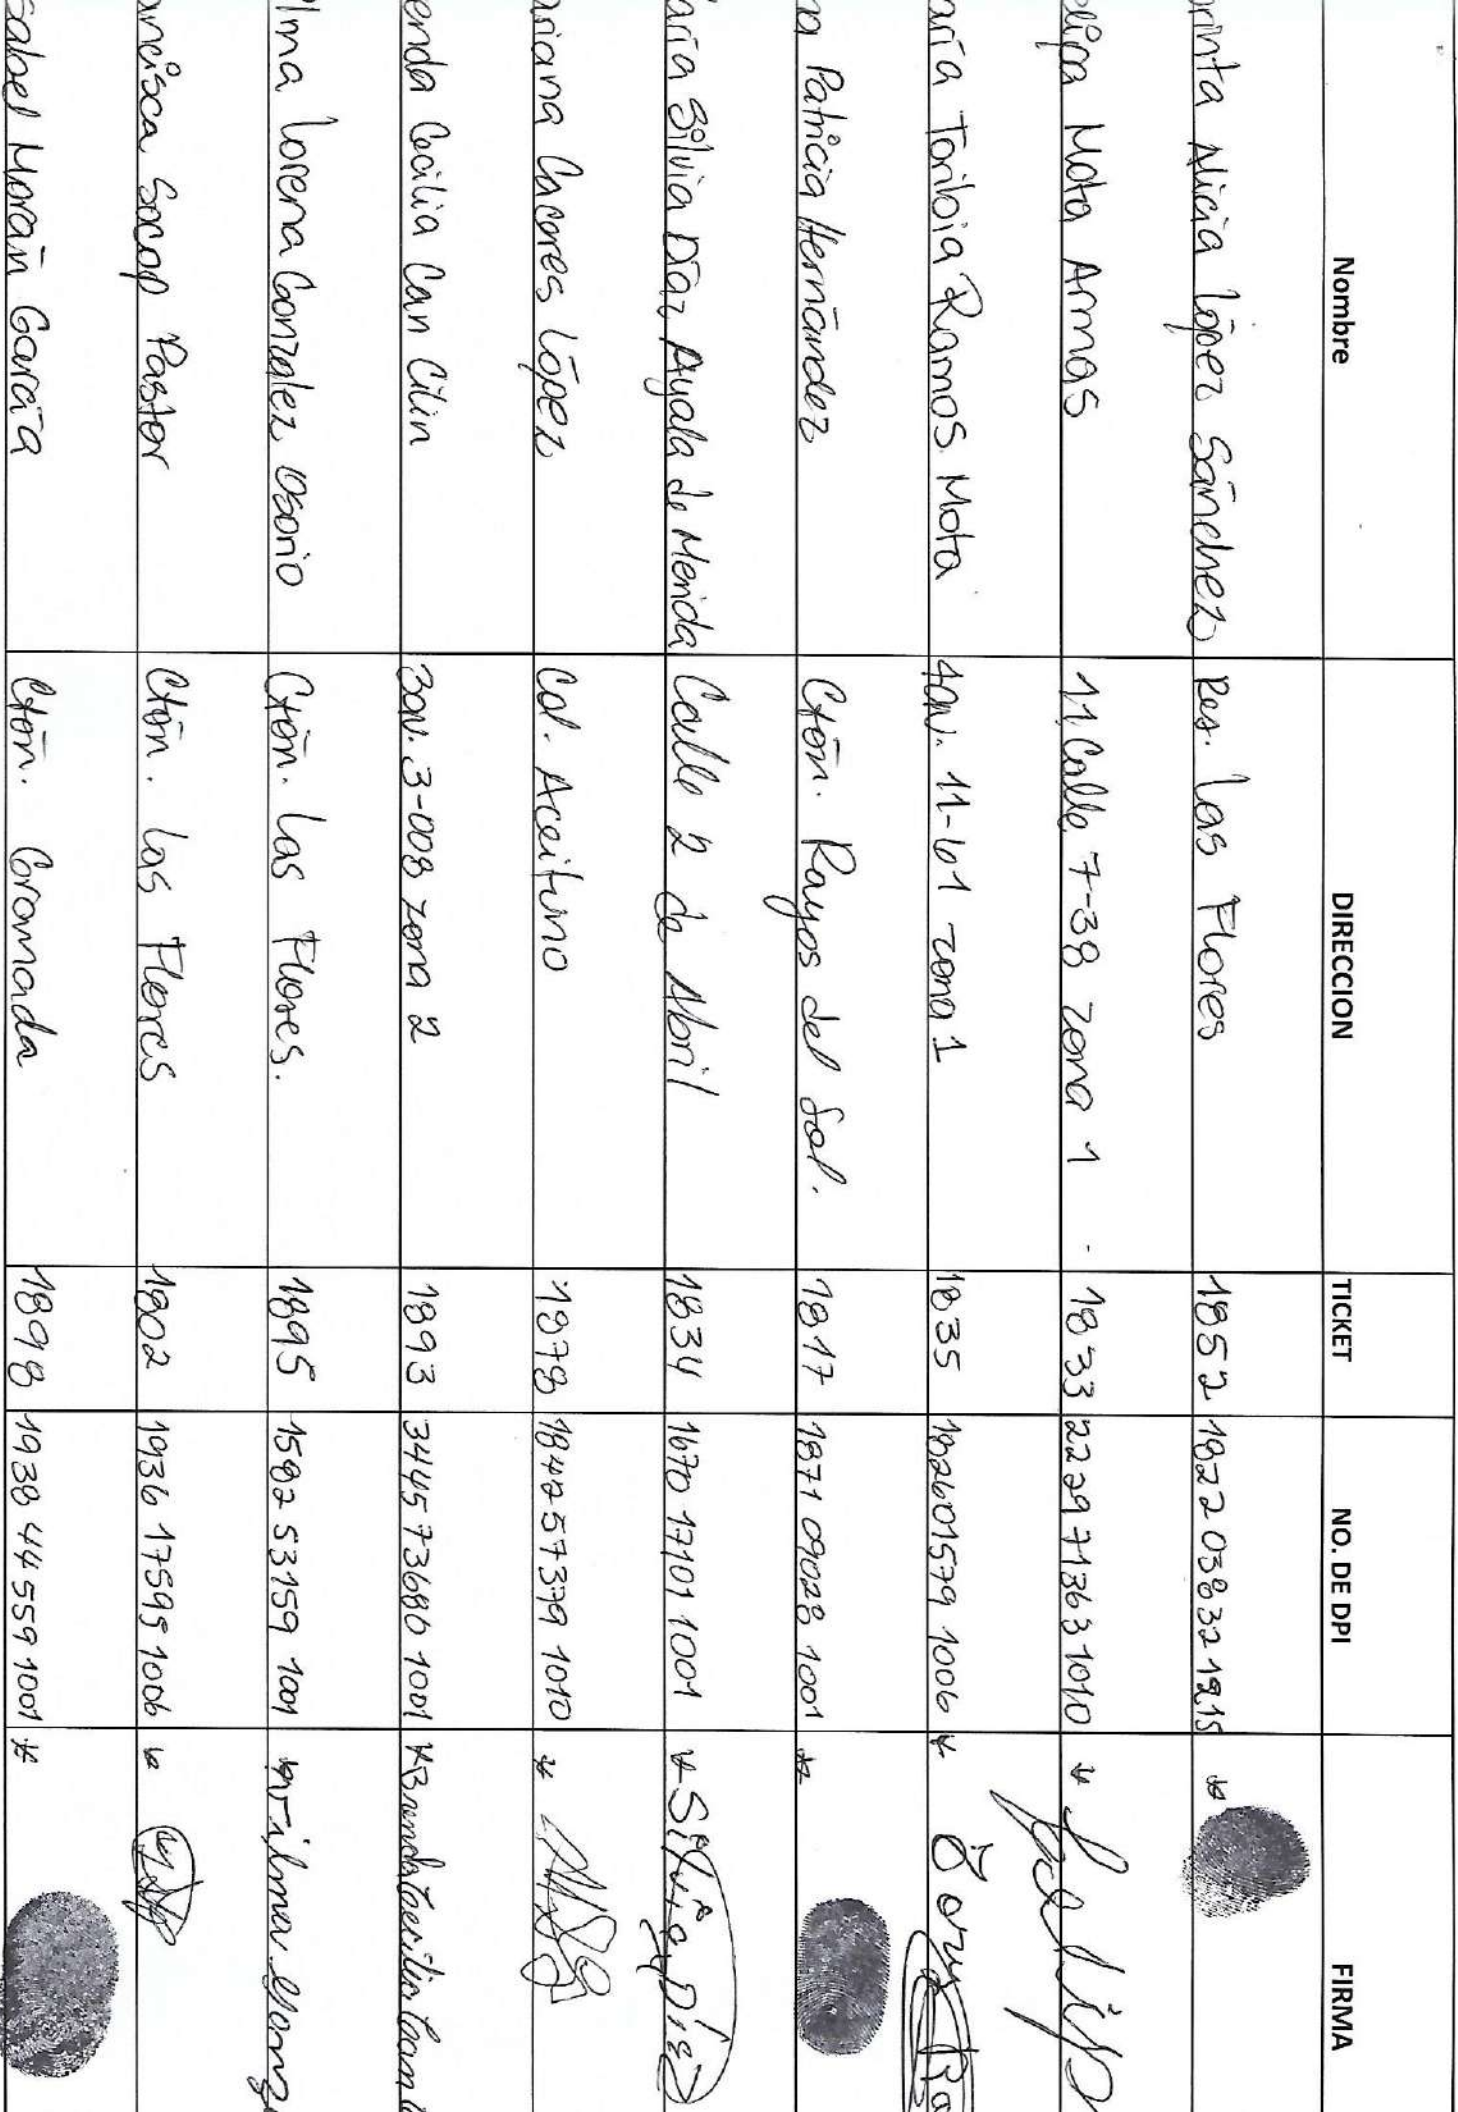 Nombre DIRECCION TICKET NO. DE DPI FIRMA
rinta Alicia López Sánchez Res. Las Flores 1852 1822 03832 1215 *
elipa Mota Armas 11 Calle 7-38 zona 1 - 1833 2229 71363 1010 *
aría Toribia Ramos Mota 4av. 11-61 zona 1 1835 1826 01579 1006 *
na Patricia Hernández Ctón. Rayos del Sol. 1817 1871 09028 1001 *
aría Silvia Díaz Ayala de Merida Calle 2 de Abril 1834 1670 17101 1001 * Silvia Díaz
ariana Caceres López Col. Aceituno 1878 1842 57379 1010 *
enda Cecilia Can Cilin 3av. 3-008 zona 2 1893 3445 73680 1001 * Brenda Cecilia Can
lma Lorena Gonzalez Osorio Ctón. Las Flores. 1895 1582 53159 1001
ancisca Socop Pastor Ctón. Las Flores 1802 1936 17595 1006 *
sabel Morán García Ctón. Coronada 1898 1938 44559 1001 *